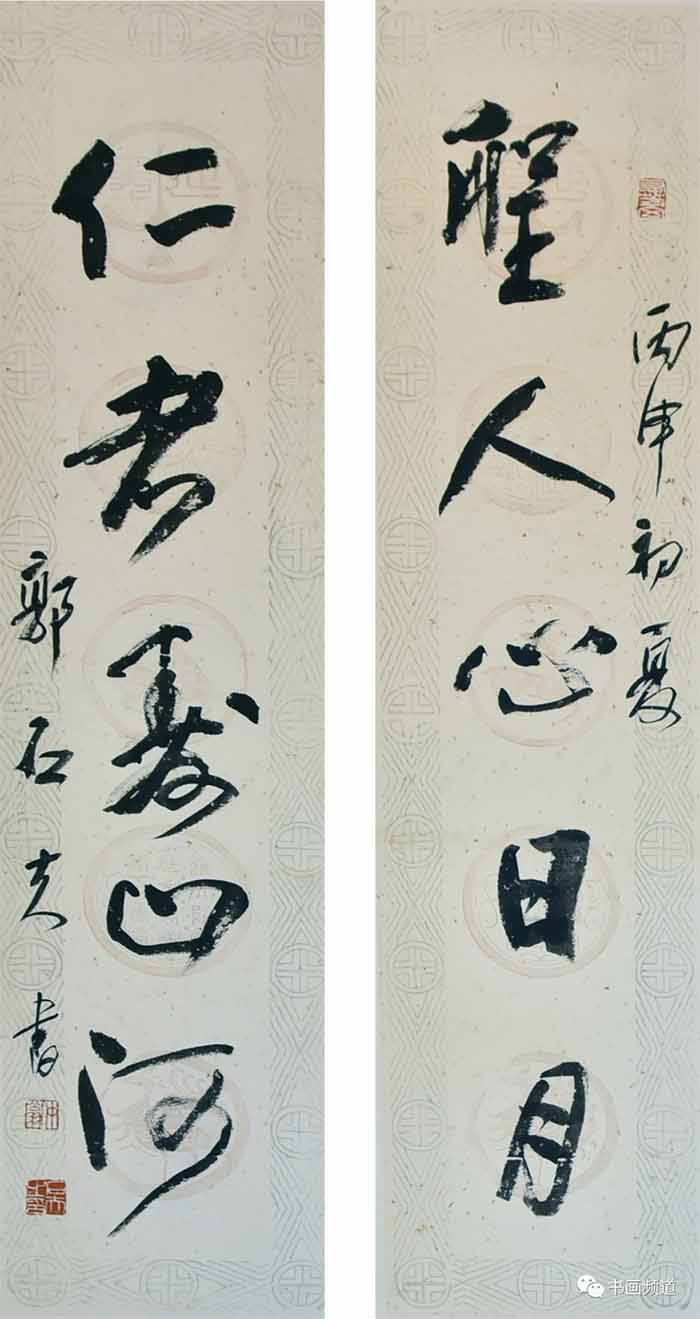 丙申初夏
聖人心日月
仁者壽山河
郭石夫書
书画频道